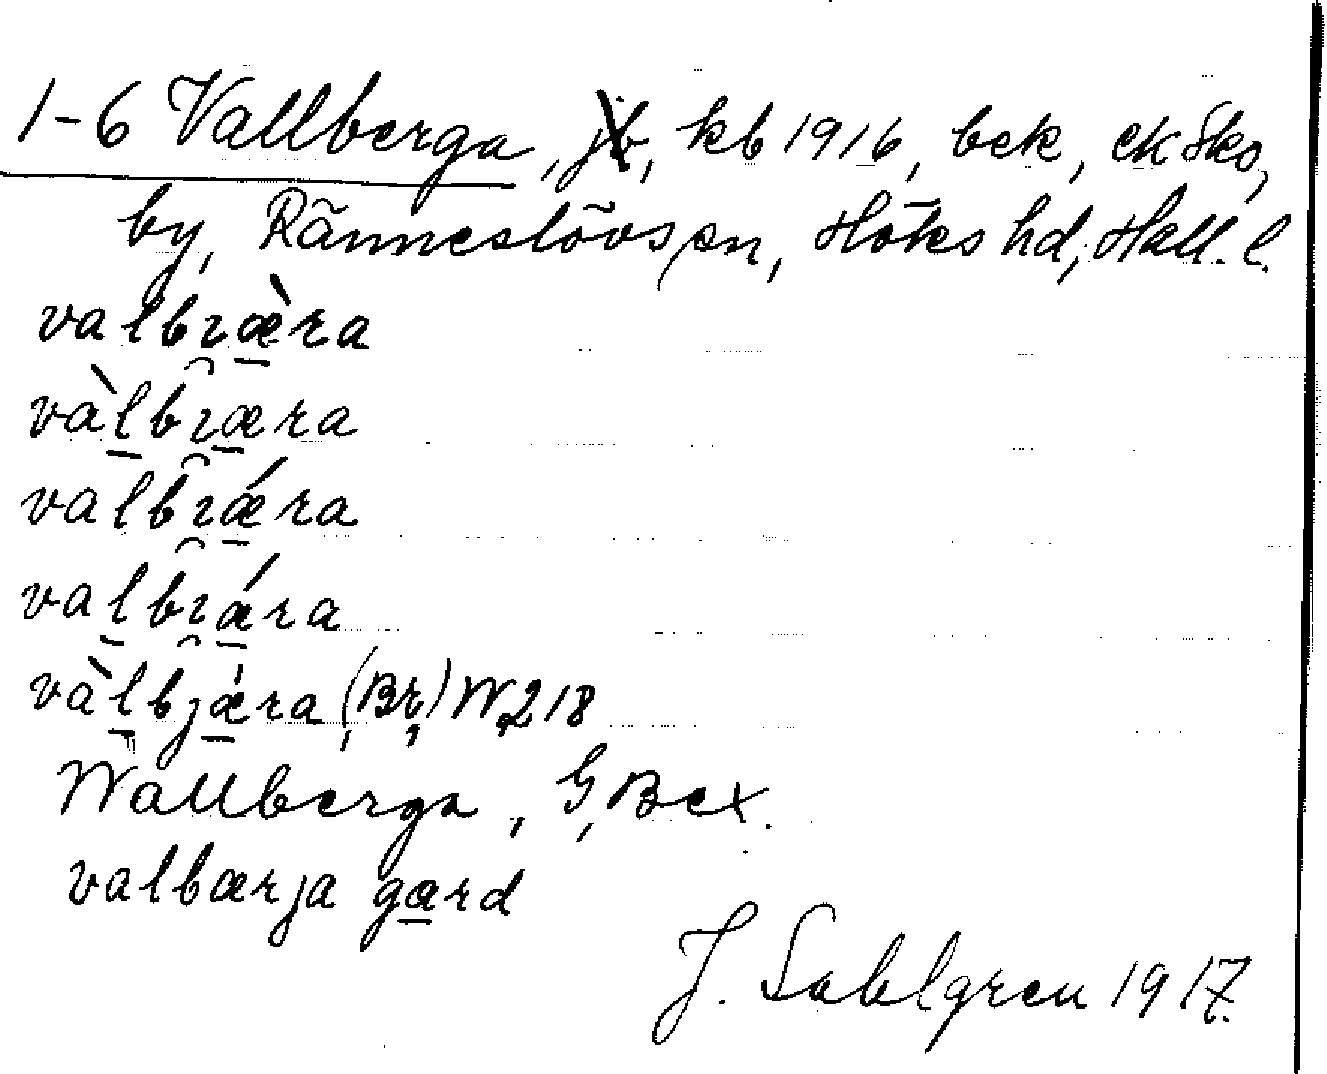 1-6 Vallberga, jb, kb 1916, bek, ek Sko,
by, Ränneslövs sn, Höks hd, Hall. l.
valbıæ̀ra
vàlbıæra
valbıǽra
valbıǽra
vàlbjæra (Br) W 218
Wallberga, G, Bex.
valbærja gard
J. Sahlgren 1917.